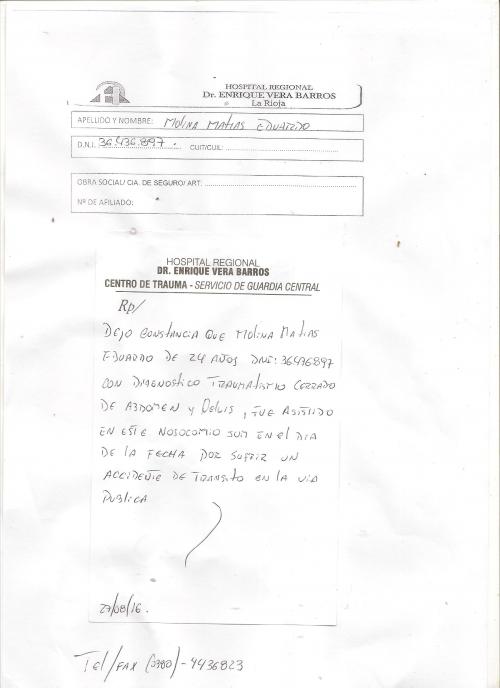 HOSPITAL REGIONAL
Dr. ENRIQUE VERA BARROS
La Rioja
APELLIDO Y NOMBRE: MOLINA MATIAS EDUARDO
D.N.I. 36.436.897. CUIT/CUIL:
OBRA SOCIAL/ CIA. DE SEGURO/ ART:
Nº DE AFILIADO:
HOSPITAL REGIONAL
DR. ENRIQUE VERA BARROS
CENTRO DE TRAUMA - SERVICIO DE GUARDIA CENTRAL
Rp/
DEJO CONSTANCIA QUE MOLINA MATIAS
EDUARDO DE 24 AÑOS DNI: 36436897
CON DIAGNOSTICO TRAUMATISMO CERRADO
DE ABDOMEN y PELVIS, FUE ASISTIDO
EN ESTE NOSOCOMIO EN EL DIA
DE LA FECHA POR SUFRIR UN
ACCIDENTE DE TRANSITO EN LA VIA
PUBLICA
27/08/16.
Tel/FAX (0380)-4436823